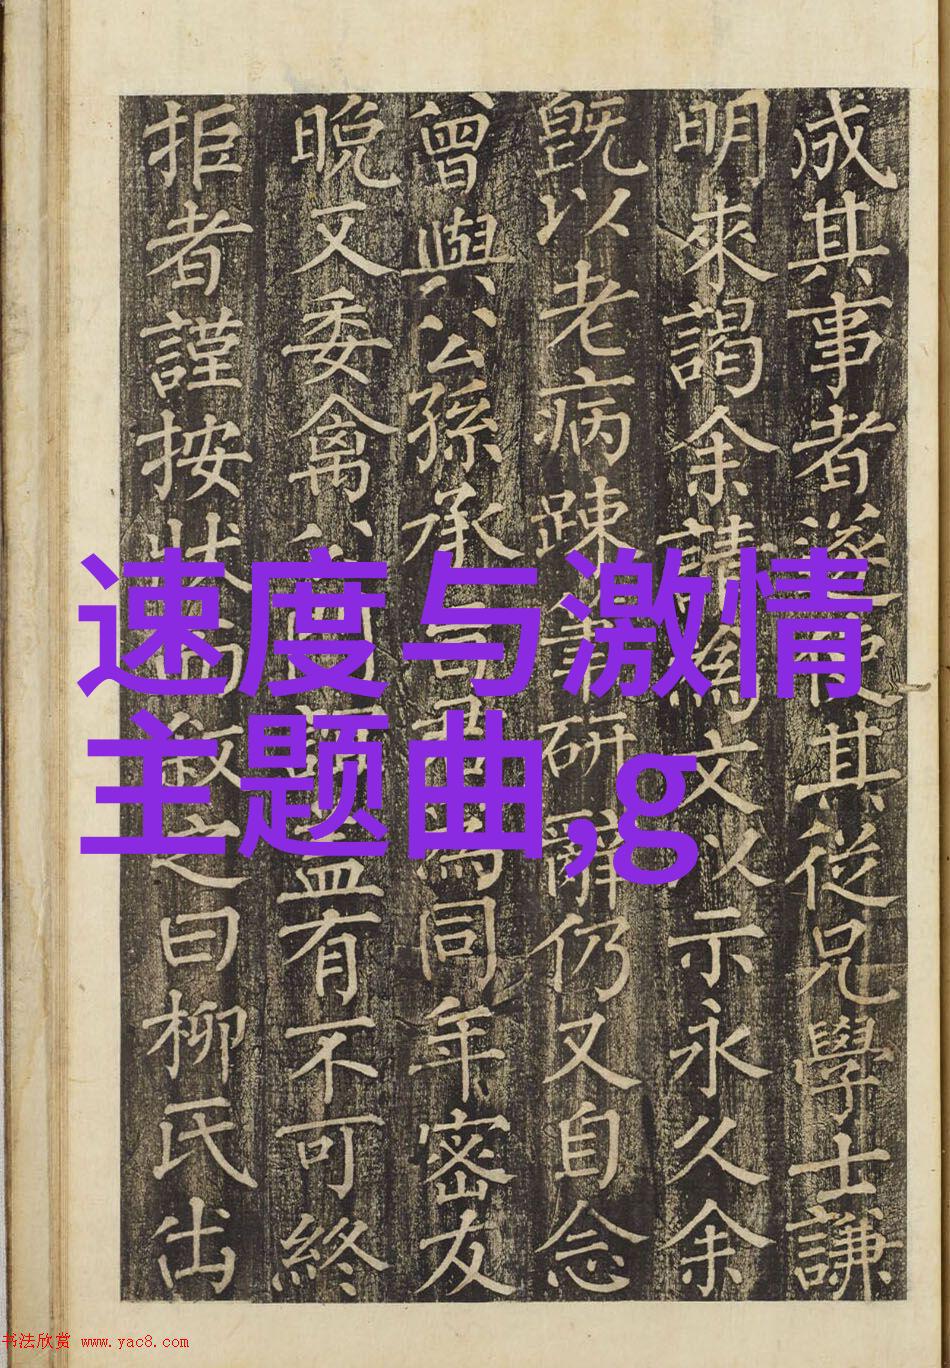 成其事者遂使其從兄學士謙
明來謁余請為文以示永久余
既以老病踈筆研辭仍又自念
曾與公孫承為同年密友
晚又委禽公門有不可終
拒者謹按狀而叙之曰柳氏出
速度与激情
主题曲,g
书法欣赏 www.yac8.com